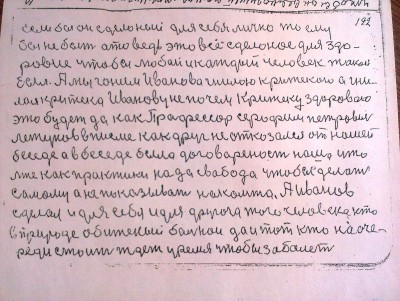 192
если бы он сделаный для себя лично то ему
бы не быт а то ведь это всё сделоное для здо-
ровие чтобы любой и каждый человек таков
был. А мы гоним Иванова гнилою критекою а гни-
лая критека Иванову не по чем Критеку здоровою
это будет да как Профессор серафим петрович
в писме как друг не отказался от нашей
беседе а в беседе была договареность наш что
мне как практики нада свабода чтобы сделат
самому а не показыват на комта. А Иванов
сделал и для себя и для другога того человека кто
в природе обиженый балной да и тот кто на оче-
реди стоит ждет время чтобы заболет